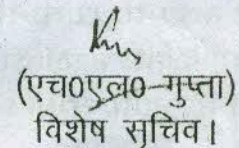 (एच0एल0-गुप्ता)
विशेष सचिव।